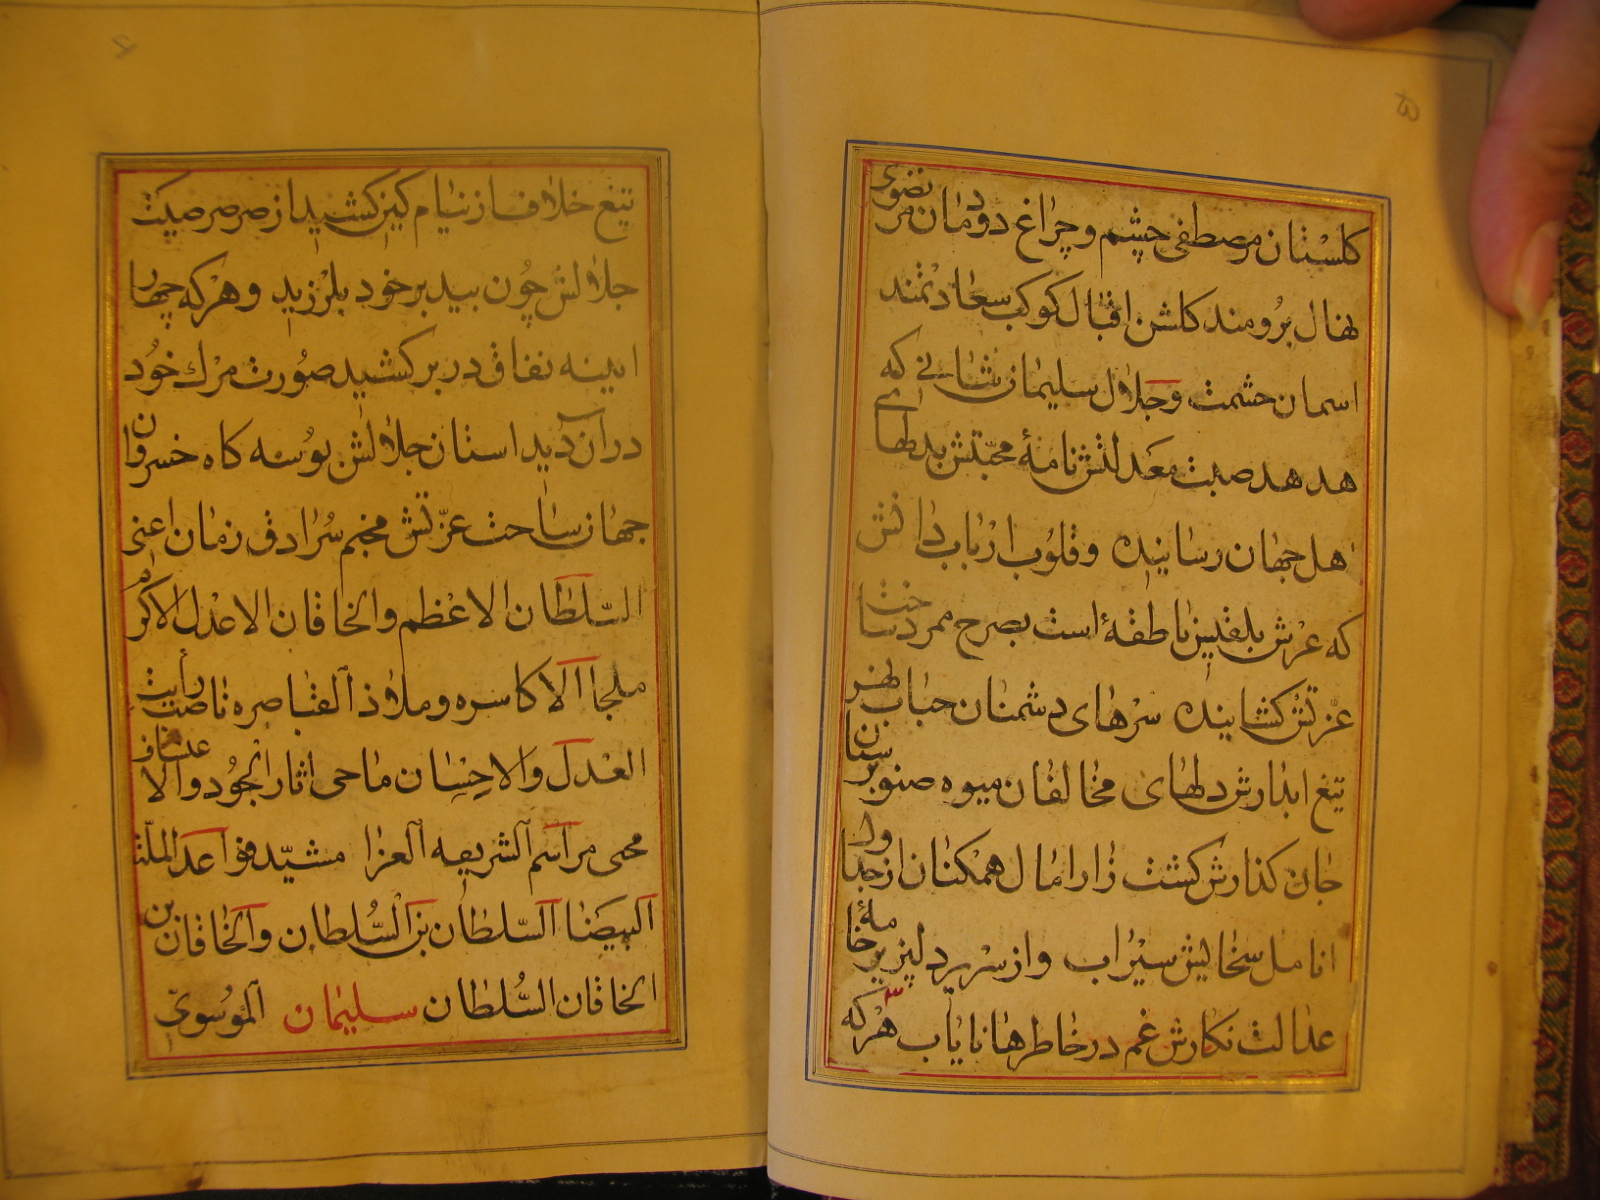 کلستان مصطفی چشم و چراغ دودمان مرتضوی
نهال برومند کلشن اقبال کوکب سعادتمند
اسمان حشمت و جلال سلیمان شانی که
هدهد صیت معدلتش نامهٔ محبتش بدلهای
اهل جهان رسانیده و قلوب ارباب دانش
که عرش بلقیس ناطقهٔ است بصرح ممرد ساخت
عزتش کشاینده سرهای دشمنان حباب لهز
تیغ ابدارش دلهای مخالفان میوه صنوبرستان
جان کذارش کشت زار امال همکنان از جداول
انامل سخایش سیراب و از سربرد لپذیر خامهٔ
عدالت نکارش غم در خاطرها نایاب هرکه
تیغ خلاف از نیام کین کشید از صرصر صیت
جلالش چون بید بر خود بلرزید و هرکه چهار
ایینه نفاق در بر کشید صورت مرك خود
در آن دید استان جلالش بوسه کاه خسروان
جهان ساحت عزتش مخیم سرادق زمان اعنی
السلطان الاعظم والخاقان الاعدل الاکرم
ملجا الاکاسره وملاذ القیاصره ناصب رأیت
العدل والاحسان ماحی اثار الجود والاعتساف
محی مراسم الشریعه الغرا مشید قواعد الملت
البیضا السلطان بن السلطان والخاقان بن
الخاقان السلطان سلیمان الموسوی